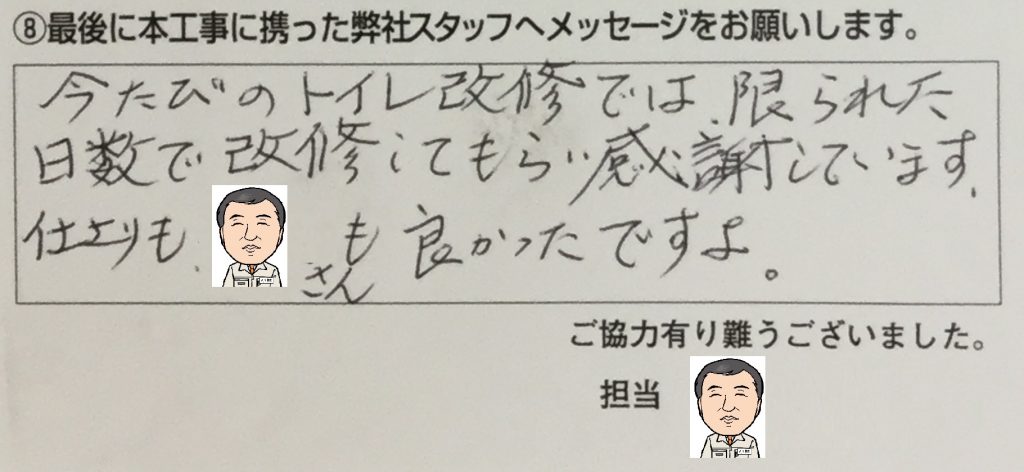 ⑧最後に本工事に携った弊社スタッフへメッセージをお願いします。
今たびのトイレ改修では、限られた
日数で改修してもらい感謝しています。
仕上りも、さんも良かったですよ。
ご協力有り難うございました。
担当